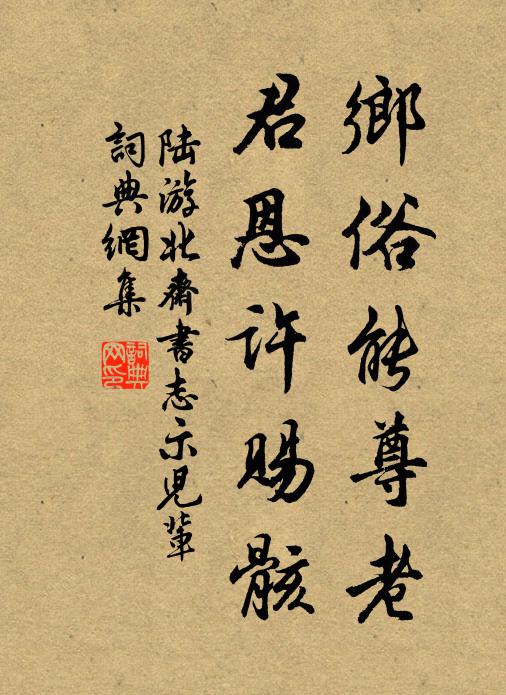 鄉俗能尊老
君恩許賜骸
陸游北齋書志示兒輩
詞典網集
詞典网印